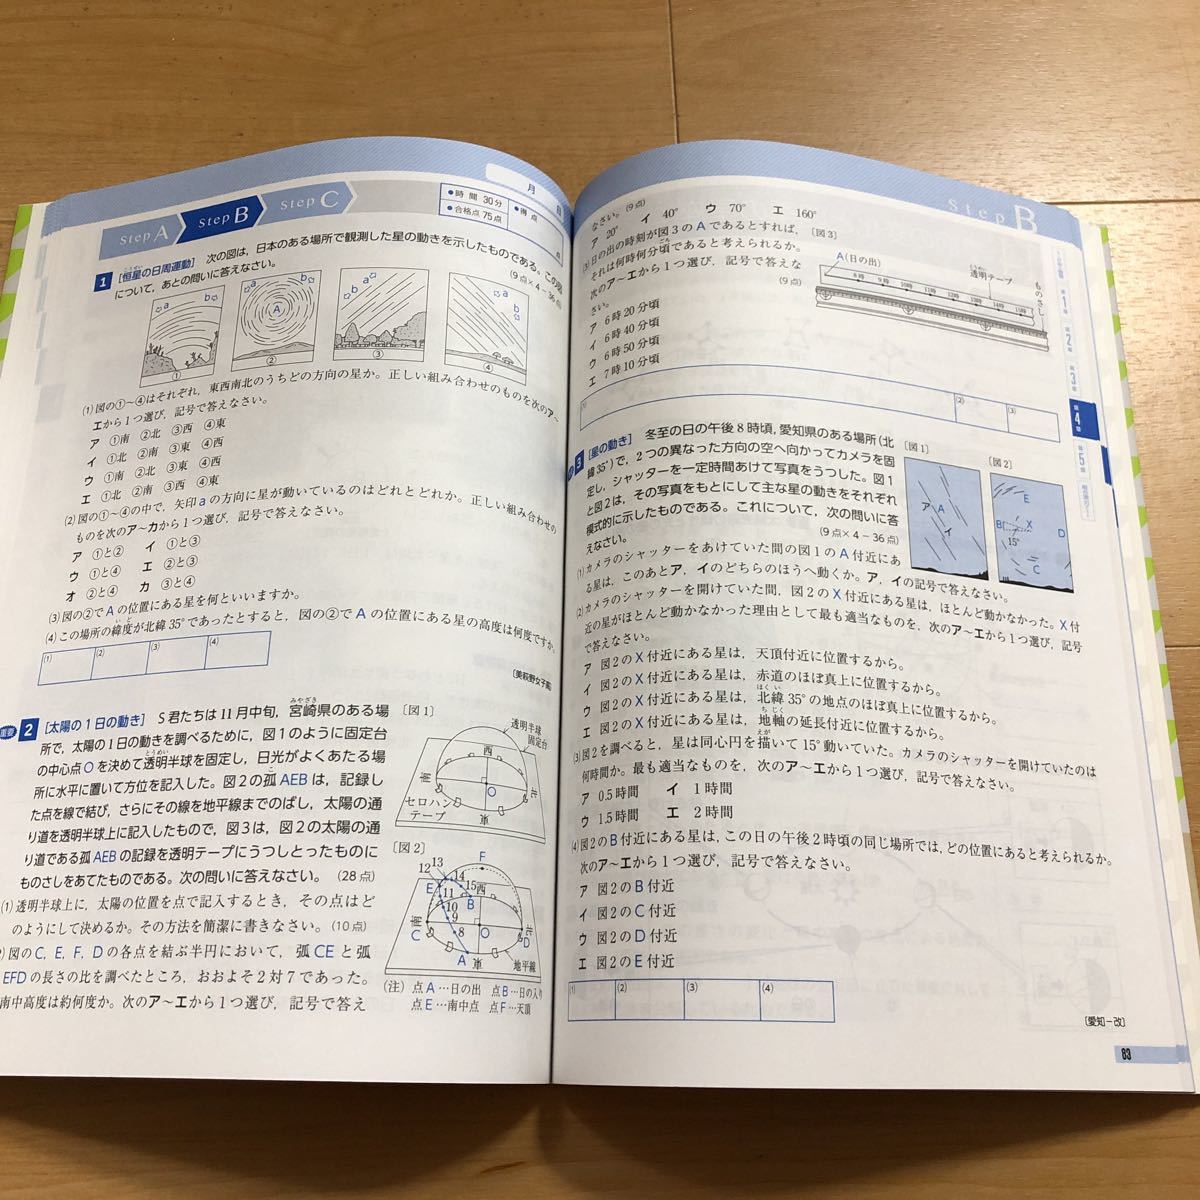 Step A
Step B
Step C
月 日
●時 間 30分
●合格点 75点
●得 点
点
1 [恒星の日周運動] 次の図は，日本のある場所で観測した星の動きを示したものである。この図
について，あとの問いに答えなさい。
(9点×4－36点)
a b
A
a b
a
b
① ② ③ ④
(1) 図の①～④はそれぞれ，東西南北のうちどの方向の星か。正しい組み合わせのものを次のア～
エから1つ選び，記号で答えなさい。
ア ①南 ②北 ③西 ④東
イ ①北 ②南 ③東 ④西
ウ ①南 ②北 ③東 ④西
エ ①北 ②南 ③西 ④東
(2) 図の①～④の中で，矢印aの方向に星が動いているのはどれとどれか。正しい組み合わせの
ものを次のア～カから1つ選び，記号で答えなさい。
ア ①と② イ ①と③
ウ ①と④ エ ②と③
オ ②と④ カ ③と④
(3) 図の②でAの位置にある星を何といいますか。
(4) この場所の緯度が北緯35°であったとすると，図の②でAの位置にある星の高度は何度ですか。
(1) (2) (3) (4)
〔美萩野女子高〕
重要 2 [太陽の1日の動き] S君たちは11月中旬，宮崎県のある場
所で，太陽の1日の動きを調べるために，図1のように固定台
の中心点Oを決めて透明半球を固定し，日光がよくあたる場
所に水平に置いて方位を記入した。図2の弧AEBは，記録し
た点を線で結び，さらにその線を地平線までのばし，太陽の通
り道を透明半球上に記入したもので，図3は，図2の太陽の通
り道である弧AEBの記録を透明テープにうつしとったものに
ものさしをあてたものである。次の問いに答えなさい。 (28点)
(1) 透明半球上に，太陽の位置を点で記入するとき，その点はど
のようにして決めるか。その方法を簡潔に書きなさい。(10点)
図のC，E，F，Dの各点を結ぶ半円において，弧CEと弧
EFDの長さの比を調べたところ，おおよそ2対7であった。
南中高度は約何度か。次のア～エから1つ選び，記号で答え
〔図1〕
透明半球
固定台
西
南
北
O
セロハン
テープ
東
〔図2〕
F
13
12
14
15
E
11
西
B
10
9
南
北
8
O
C
D
A
東
地平線
(注) 点A…日の出 点B…日の入り
点E…南中点 点F…天頂
Step B
なさい。(9点)
ア 20° イ 40° ウ 70° エ 160°
(3) 日の出の時刻が図3のAであるとすれば，
それは何時何分頃であると考えられるか。
次のア～エから1つ選び，記号で答えな
さい。
(9点)
ア 6時20分頃
イ 6時40分頃
ウ 6時50分頃
エ 7時10分頃
〔図3〕
A(日の出)
透明テープ
ものさし
8時 9時 10時 11時 12時 13時 14時 15時
(1) (2) (3)
第1章
第2章
第3章
第4章
第5章
3 [星の動き] 冬至の日の午後8時頃，愛知県のある場所(北
緯35°)で，2つの異なった方向の空へ向かってカメラを固
定し，シャッターを一定時間あけて写真をうつした。図1
と図2は，その写真をもとにして主な星の動きをそれぞれ
模式的に示したものである。これについて，次の問いに答
えなさい。
(9点×4－36点)
〔図1〕
ア
A
イ
〔図2〕
E
B
X
D
15°
C
(1) カメラのシャッターをあけていた間の図1のA付近にあ
る星は，このあとア，イのどちらのほうへ動くか。ア，イの記号で答えなさい。
(2) カメラのシャッターを開けていた間，図2のX付近にある星は，ほとんど動かなかった。X付
近の星がほとんど動かなかった理由として最も適当なものを，次のア～エから1つ選び，記号
で答えなさい。
ア 図2のX付近にある星は，天頂付近に位置するから。
イ 図2のX付近にある星は，赤道のほぼ真上に位置するから。
ウ 図2のX付近にある星は，北緯35°の地点のほぼ真上に位置するから。
エ 図2のX付近にある星は，地軸の延長付近に位置するから。
(3) 図2を調べると，星は同心円を描いて15°動いていた。カメラのシャッターを開けていたのは
何時間か。最も適当なものを，次のア～エから1つ選び，記号で答えなさい。
ア 0.5時間 イ 1時間
ウ 1.5時間 エ 2時間
(4) 図2のB付近にある星は，この日の午後2時頃の同じ場所では，どの位置にあると考えられるか。
次のア～エから1つ選び，記号で答えなさい。
ア 図2のB付近
イ 図2のC付近
ウ 図2のD付近
エ 図2のE付近
(1) (2) (3) (4)
〔愛知－改〕
83